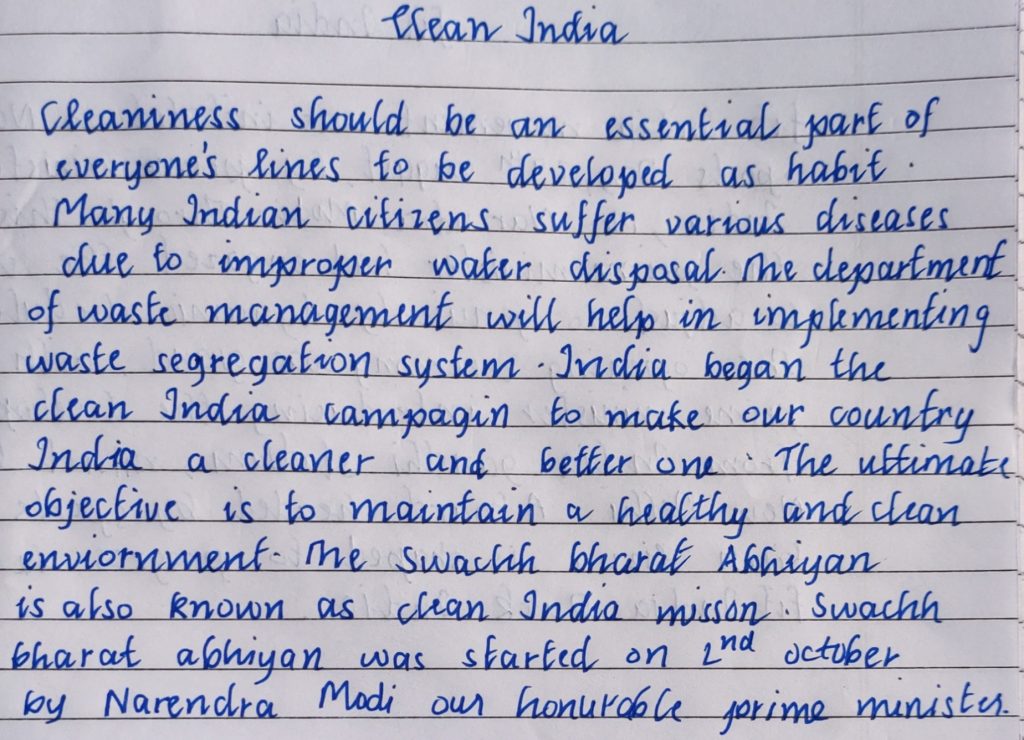 Clean India
Cleaniness should be an essential part of
everyone's lines to be developed as habit.
Many Indian citizens suffer various diseases
due to improper water disposal. The department
of waste management will help in implementing
waste segregation system. India began the
clean India campagin to make our country
India a cleaner and better one. The ultimate
objective is to maintain a healthy and clean
enviornment. The swachh bharat Abhiyan
is also known as clean India misson. Swachh
bharat abhiyan was started on 2nd october
by Narendra Modi our honurable prime minister.